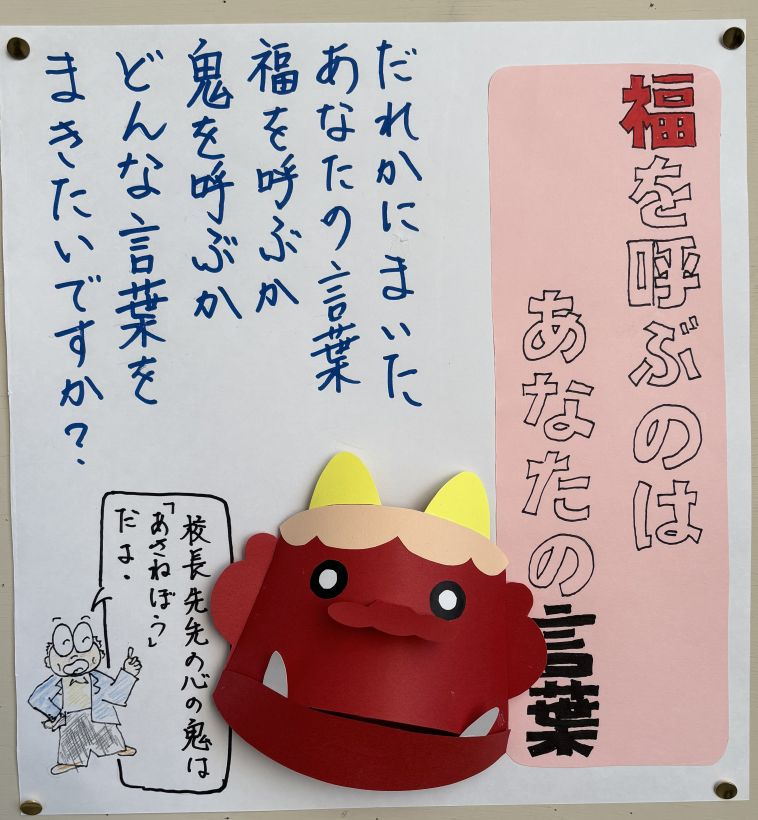 福を呼ぶのは
あなたの言葉
だれかにまいた
あなたの言葉
福を呼ぶか
鬼を呼ぶか
どんな言葉を
まきたいですか？
校長先先の心の鬼は
「あさねぼう」
だよ．